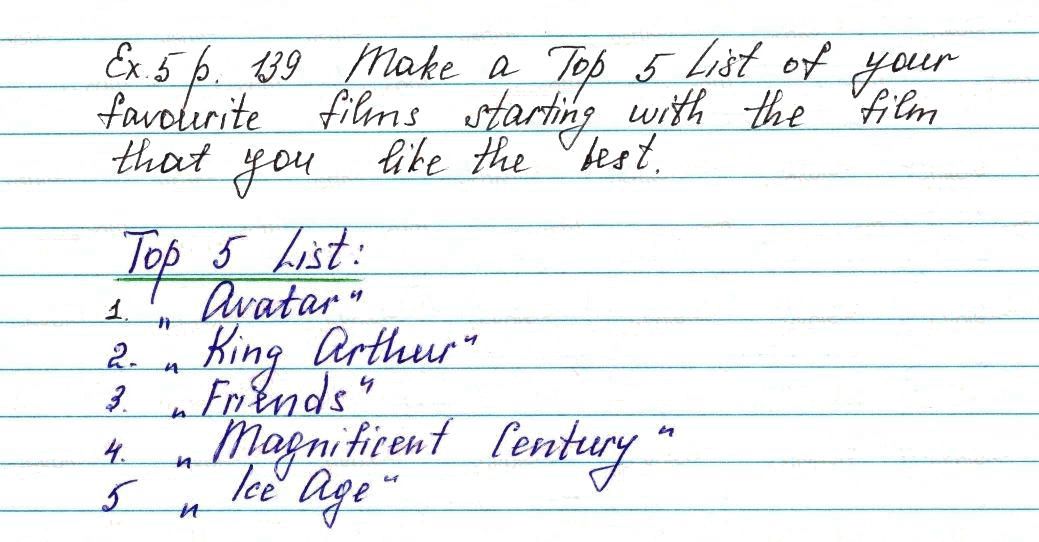 Ex. 5 p. 139 Make a Top 5 List of your
favourite films starting with the film
that you like the best.
Top 5 List:
1. „ Avatar“
2. „ King Arthur“
3. „ Friends“
4. „ Magnificent Century“
5 „ Ice Age“